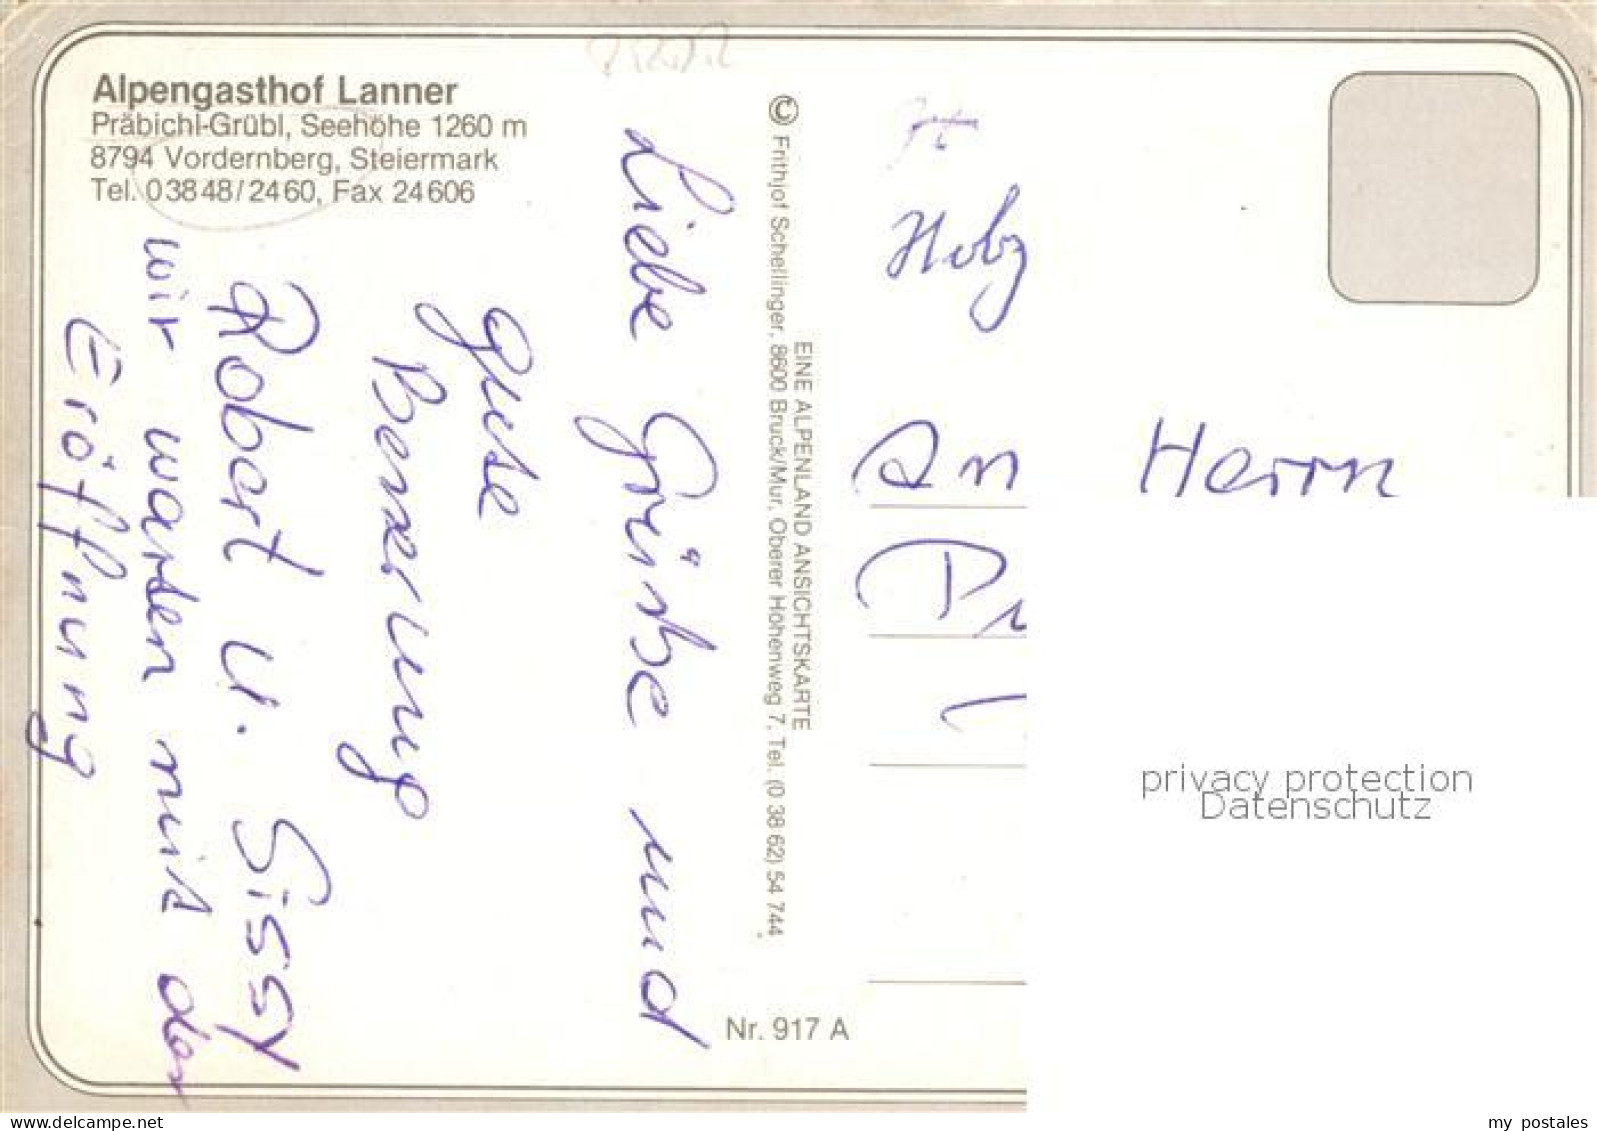 Alpengasthof Lanner
Präbichl-Grübl, Seehöhe 1260 m
8794 Vordernberg, Steiermark
Tel. 03848/2460, Fax 24606
Liebe Grüße und
gute
Besserung
Robert u. Sissy
wir warten mit der
Eröffnung
© Frithjof Schellinger, 8600 Bruck/Mur, Oberer Höhenweg 7, Tel. (0 38 62) 54 744
EINE ALPENLAND ANSICHTSKARTE
Nr. 917 A
An Herrn
privacy protection
Datenschutz
delcampe.net
my_postales